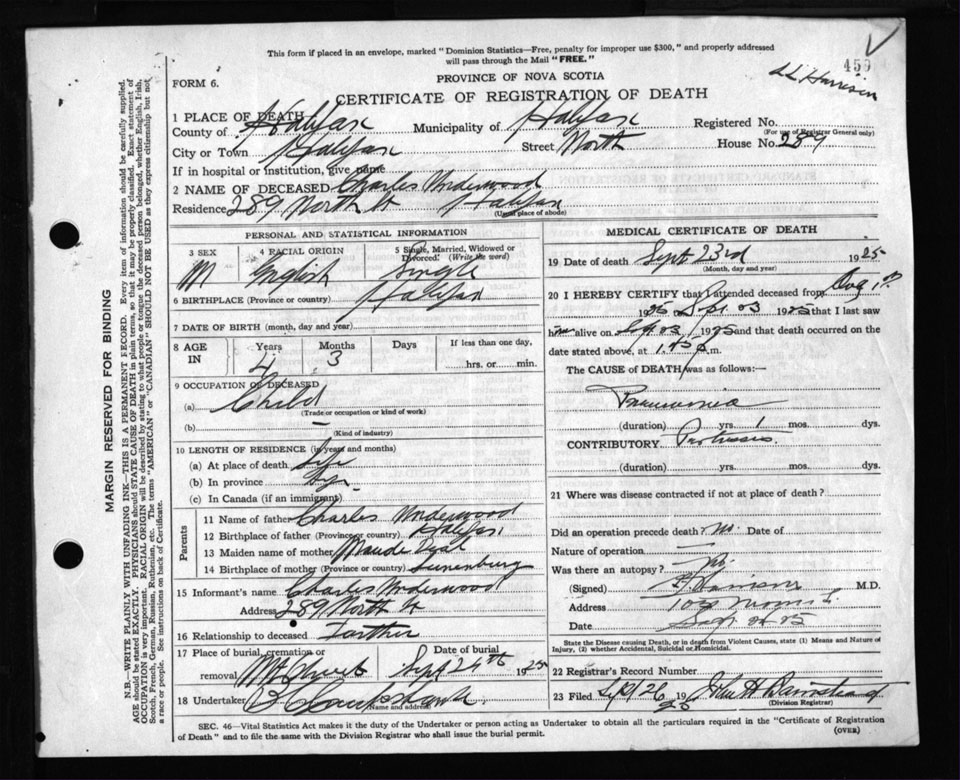 This form if placed in an envelope, marked "Dominion Statistics—Free, penalty for improper use $300," and properly addressed
will pass through the Mail "FREE."
459
PROVINCE OF NOVA SCOTIA
FORM 6.
CERTIFICATE OF REGISTRATION OF DEATH
Harrison
1 PLACE OF DEATH
County of Halifax Municipality of Halifax Registered No.
(For use of Registrar General only)
City or Town Halifax Street North House No. 289
If in hospital or institution, give name
2 NAME OF DECEASED Charles Underwood
Residence 289 North St Halifax
(Usual place of abode)
PERSONAL AND STATISTICAL INFORMATION
3 SEX 4 RACIAL ORIGIN 5 Single, Married, Widowed or Divorced. (Write the word)
M English Single
6 BIRTHPLACE (Province or country) Halifax
7 DATE OF BIRTH (month, day and year)
8 AGE IN Years Months Days If less than one day,
4 3 hrs. or min.
9 OCCUPATION OF DECEASED
(a) Child
(Trade or occupation or kind of work)
(b) —
(Kind of industry)
10 LENGTH OF RESIDENCE (in years and months)
(a) At place of death life
(b) In province
(c) In Canada (if an immigrant)
Parents
11 Name of father Charles Underwood
12 Birthplace of father (Province or country) Halifax
13 Maiden name of mother Maude
14 Birthplace of mother (Province or country) Lunenburg
15 Informant's name Charles Underwood
Address 289 North St
16 Relationship to deceased Farther
17 Place of burial, cremation or removal Date of burial
Mt Olivet Sept 24th 1925
18 Undertaker
(Name and address)
MEDICAL CERTIFICATE OF DEATH
19 Date of death Sept 23rd 1925
(Month, day and year)
20 I HEREBY CERTIFY that I attended deceased from Aug 1st
1925 to Sept 23 1925 that I last saw
him alive on Sept 23 1925 and that death occurred on
date stated above, at 1.45 p.m.
The CAUSE of DEATH was as follows:—
Pneumonia
(duration) 0 yrs. 1 mos. dys.
CONTRIBUTORY Pertussis
(duration) yrs. mos. dys.
21 Where was disease contracted if not at place of death?
Did an operation precede death? No Date of
Nature of operation —
Was there an autopsy? No
(Signed) Harrison M.D.
Address Morris St.
Date Sept 25
State the Disease causing Death, or in death from Violent Causes, state (1) Means and Nature of
Injury, (2) whether Accidental, Suicidal or Homicidal.
22 Registrar's Record Number
23 Filed Sept 26 1925
(Division Registrar)
SEC. 46—Vital Statistics Act makes it the duty of the Undertaker or person acting as Undertaker to obtain all the particulars required in the "Certificate of Registration
of Death" and to file the same with the Division Registrar who shall issue the burial permit.
(OVER)
MARGIN RESERVED FOR BINDING
N.B.—WRITE PLAINLY WITH UNFADING INK—THIS IS A PERMANENT RECORD. Every item of information should be carefully supplied.
AGE should be stated EXACTLY. PHYSICIANS should STATE CAUSE OF DEATH in plain terms, so that it may be properly classified. Exact statement of
OCCUPATION is very important. RACIAL ORIGIN will be described by stating to what people or tongue the deceased person belonged, whether English, Irish,
Scotch, French, German, Russian, Ruthenian, etc. The terms "AMERICAN" or "CANADIAN" SHOULD NOT BE USED as they express citizenship but not
a race or people. See instructions on back of Certificate.